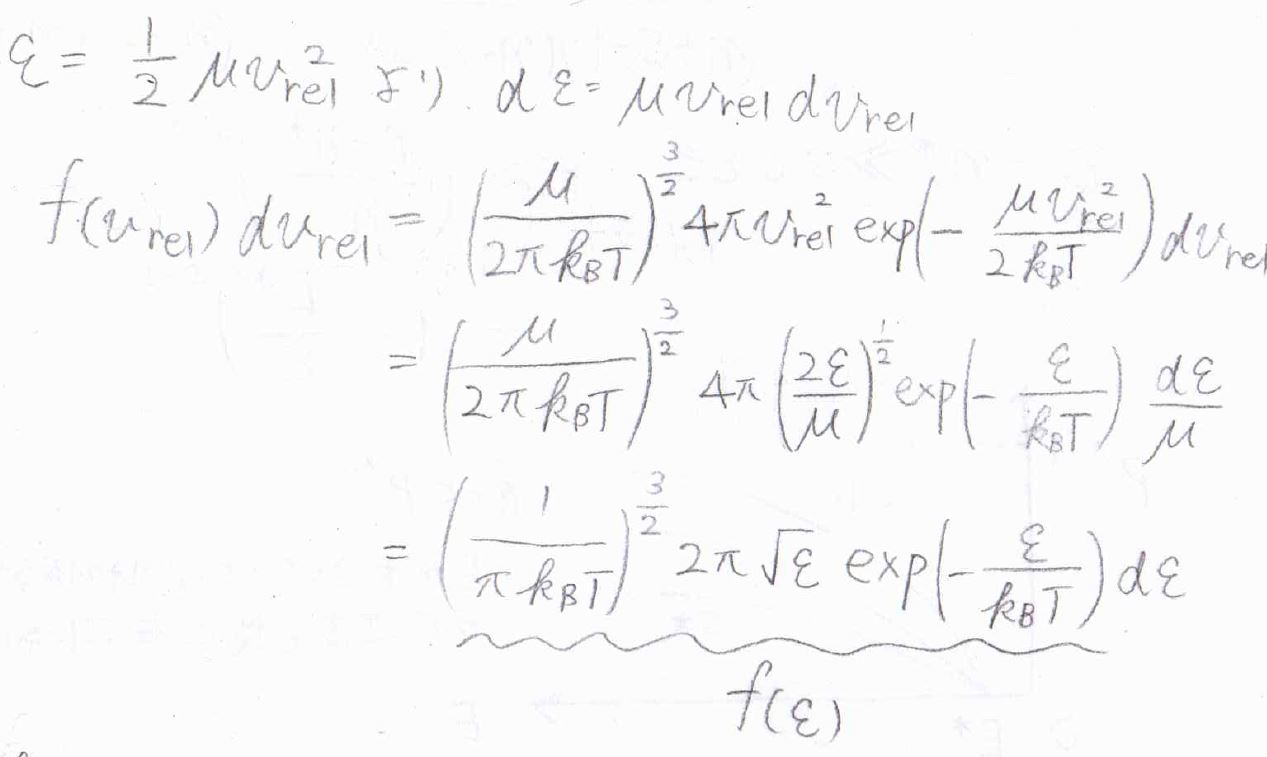 ε = 1/2 μv_rel^2 より. dε = μv_rel dv_rel
f(v_rel) dv_rel = (μ/(2πk_BT))^(3/2) 4πv_rel^2 exp(- μv_rel^2/(2k_BT)) dv_rel
= (μ/(2πk_BT))^(3/2) 4π (2ε/μ)^(1/2) exp(- ε/(k_BT)) dε/μ
= (1/(πk_BT))^(3/2) 2π √ε exp(- ε/(k_BT)) dε
f(ε)